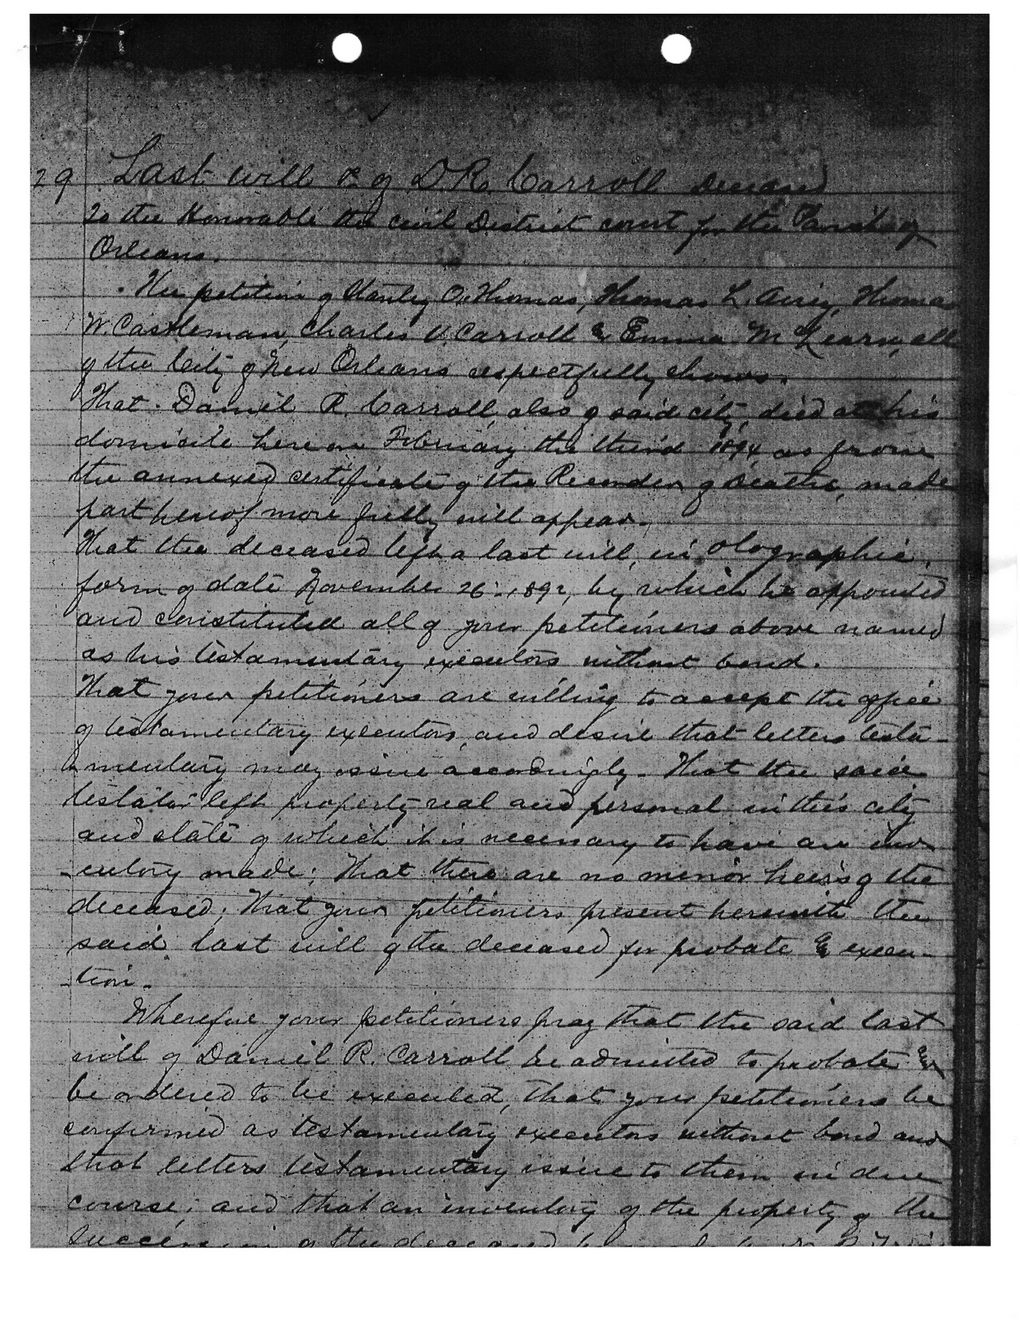 29 Last will &c of D R. Carroll Deceased
To the Honorable the civil District court for the Parish of
Orleans.
The petition of Stanley O. Thomas, Thomas L. Airey, Thomas
W. Castleman, Charles V. Carroll & Emma M Learn, all
of the City of New Orleans respectfully shows.
That Daniel R. Carroll also of said city, died at his
domicile here on February the third 1894 as from
the annexed certificate of the Recorder of deaths, made
part hereof more fully will appear.
That the deceased left a last will, in olographic
form of date November 26", 1892, by which he appointed
and constituted all of your petitioners above named
as his testamentary executors without bond.
That your petitioners are willing to accept the office
of testamentary executors, and desire that letters testa-
mentary may issue accordingly. That the said
testator left property real and personal in this city
and state of which it is necessary to have an inv
-entory made; That there are no minor heirs of the
deceased; That your petitioners present herewith the
said last will of the deceased for probate & execu-
-tion.
Wherefore your petitioners pray that the said last
will of Daniel R. Carroll be admitted to probate &
be ordered to be executed, that your petitioners be
confirmed as testamentary executors without bond and
that letters testamentary issue to them in due
course; and that an inventory of the property of the
succession of the deceased